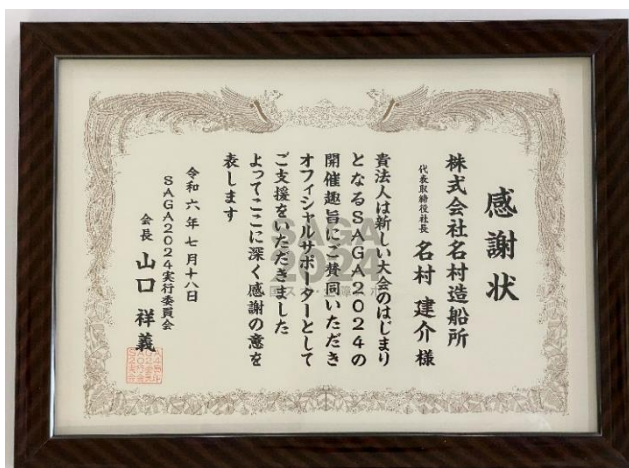 感謝状
株式会社名村造船所
代表取締役社長 名村 建介 様
貴法人は新しい大会のはじまり
となるSAGA2024の
開催趣旨にご賛同いただき
オフィシャルサポーターとして
ご支援をいただきました
よってここに深く感謝の意を
表します
令和六年七月十八日
SAGA2024実行委員会
会長 山口 祥義
SAGA
2024